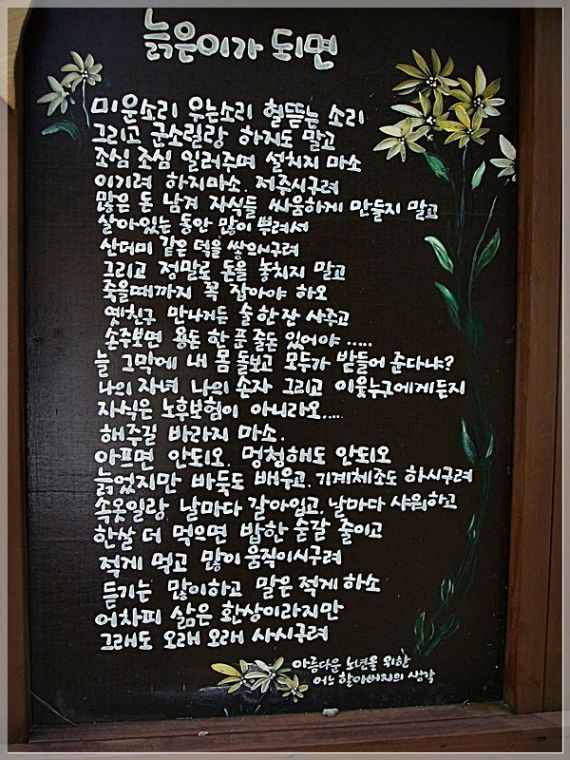 늙은이가 되면
미운소리 우는소리 헐뜯는 소리
그리고 군소릴랑 하지도 말고
조심 조심 일러주며 설치지 마소
이기려 하지마소. 져주시구려
많은 돈 남겨 자식들 싸움하게 만들지 말고
살아있는 동안 많이 뿌려서
산더미 같은 덕을 쌓으시구려
그리고 정말로 돈을 놓치지 말고
죽을때까지 꼭 잡아야 하오
옛친구 만나거든 술 한 잔 사주고
손주보면 용돈 한 푼 줄돈 있어야 .....
늘 그막에 내 몸 돌보고 모두가 받들어 준다나?
나의 자녀 나의 손자 그리고 이웃누구에게든지
자식은 노후보험이 아니라오....
해주길 바라지 마소.
아프면 안되오. 멍청해도 안되오
늙었지만 바둑도 배우고. 기계체조도 하시구려
속옷일랑 날마다 갈아입고. 날마다 샤워하고
한살 더 먹으면 밥한 숟갈 줄이고
적게 먹고 많이 움직이시구려
듣기는 많이하고 말은 적게 하소
어차피 삶은 환상이라지만
그래도 오래 오래 사시구려
아름다운 노년을 위한
어느 할아버지의 생각